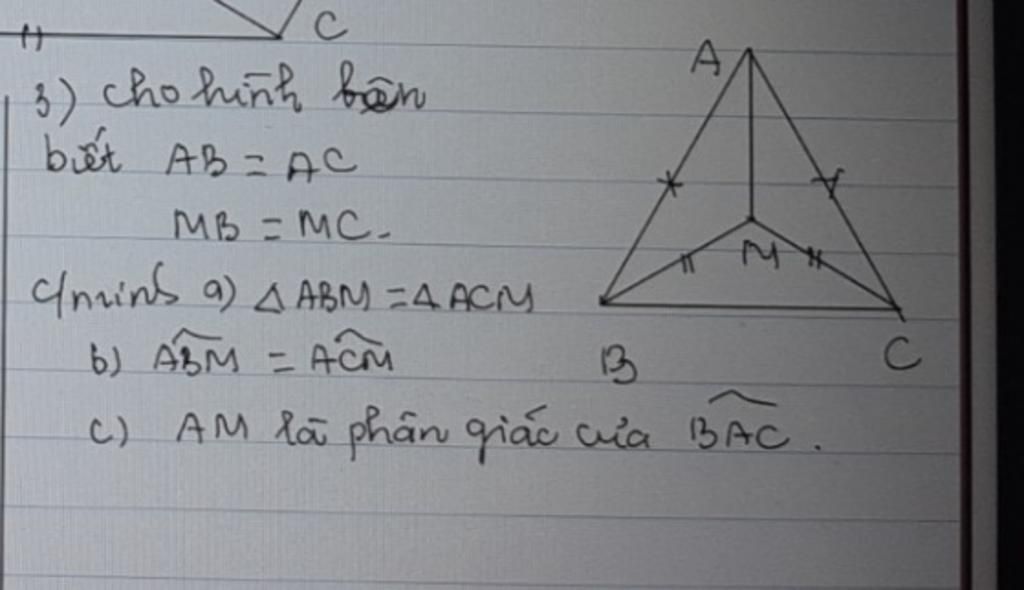 C
3) cho hình bên
biết AB = AC
MB = MC.
c/minh a) △ABM = △ACM
b) \widehat{ABM} = \widehat{ACM}
c) AM là phân giác của \widehat{BAC}.
A
M
B
C